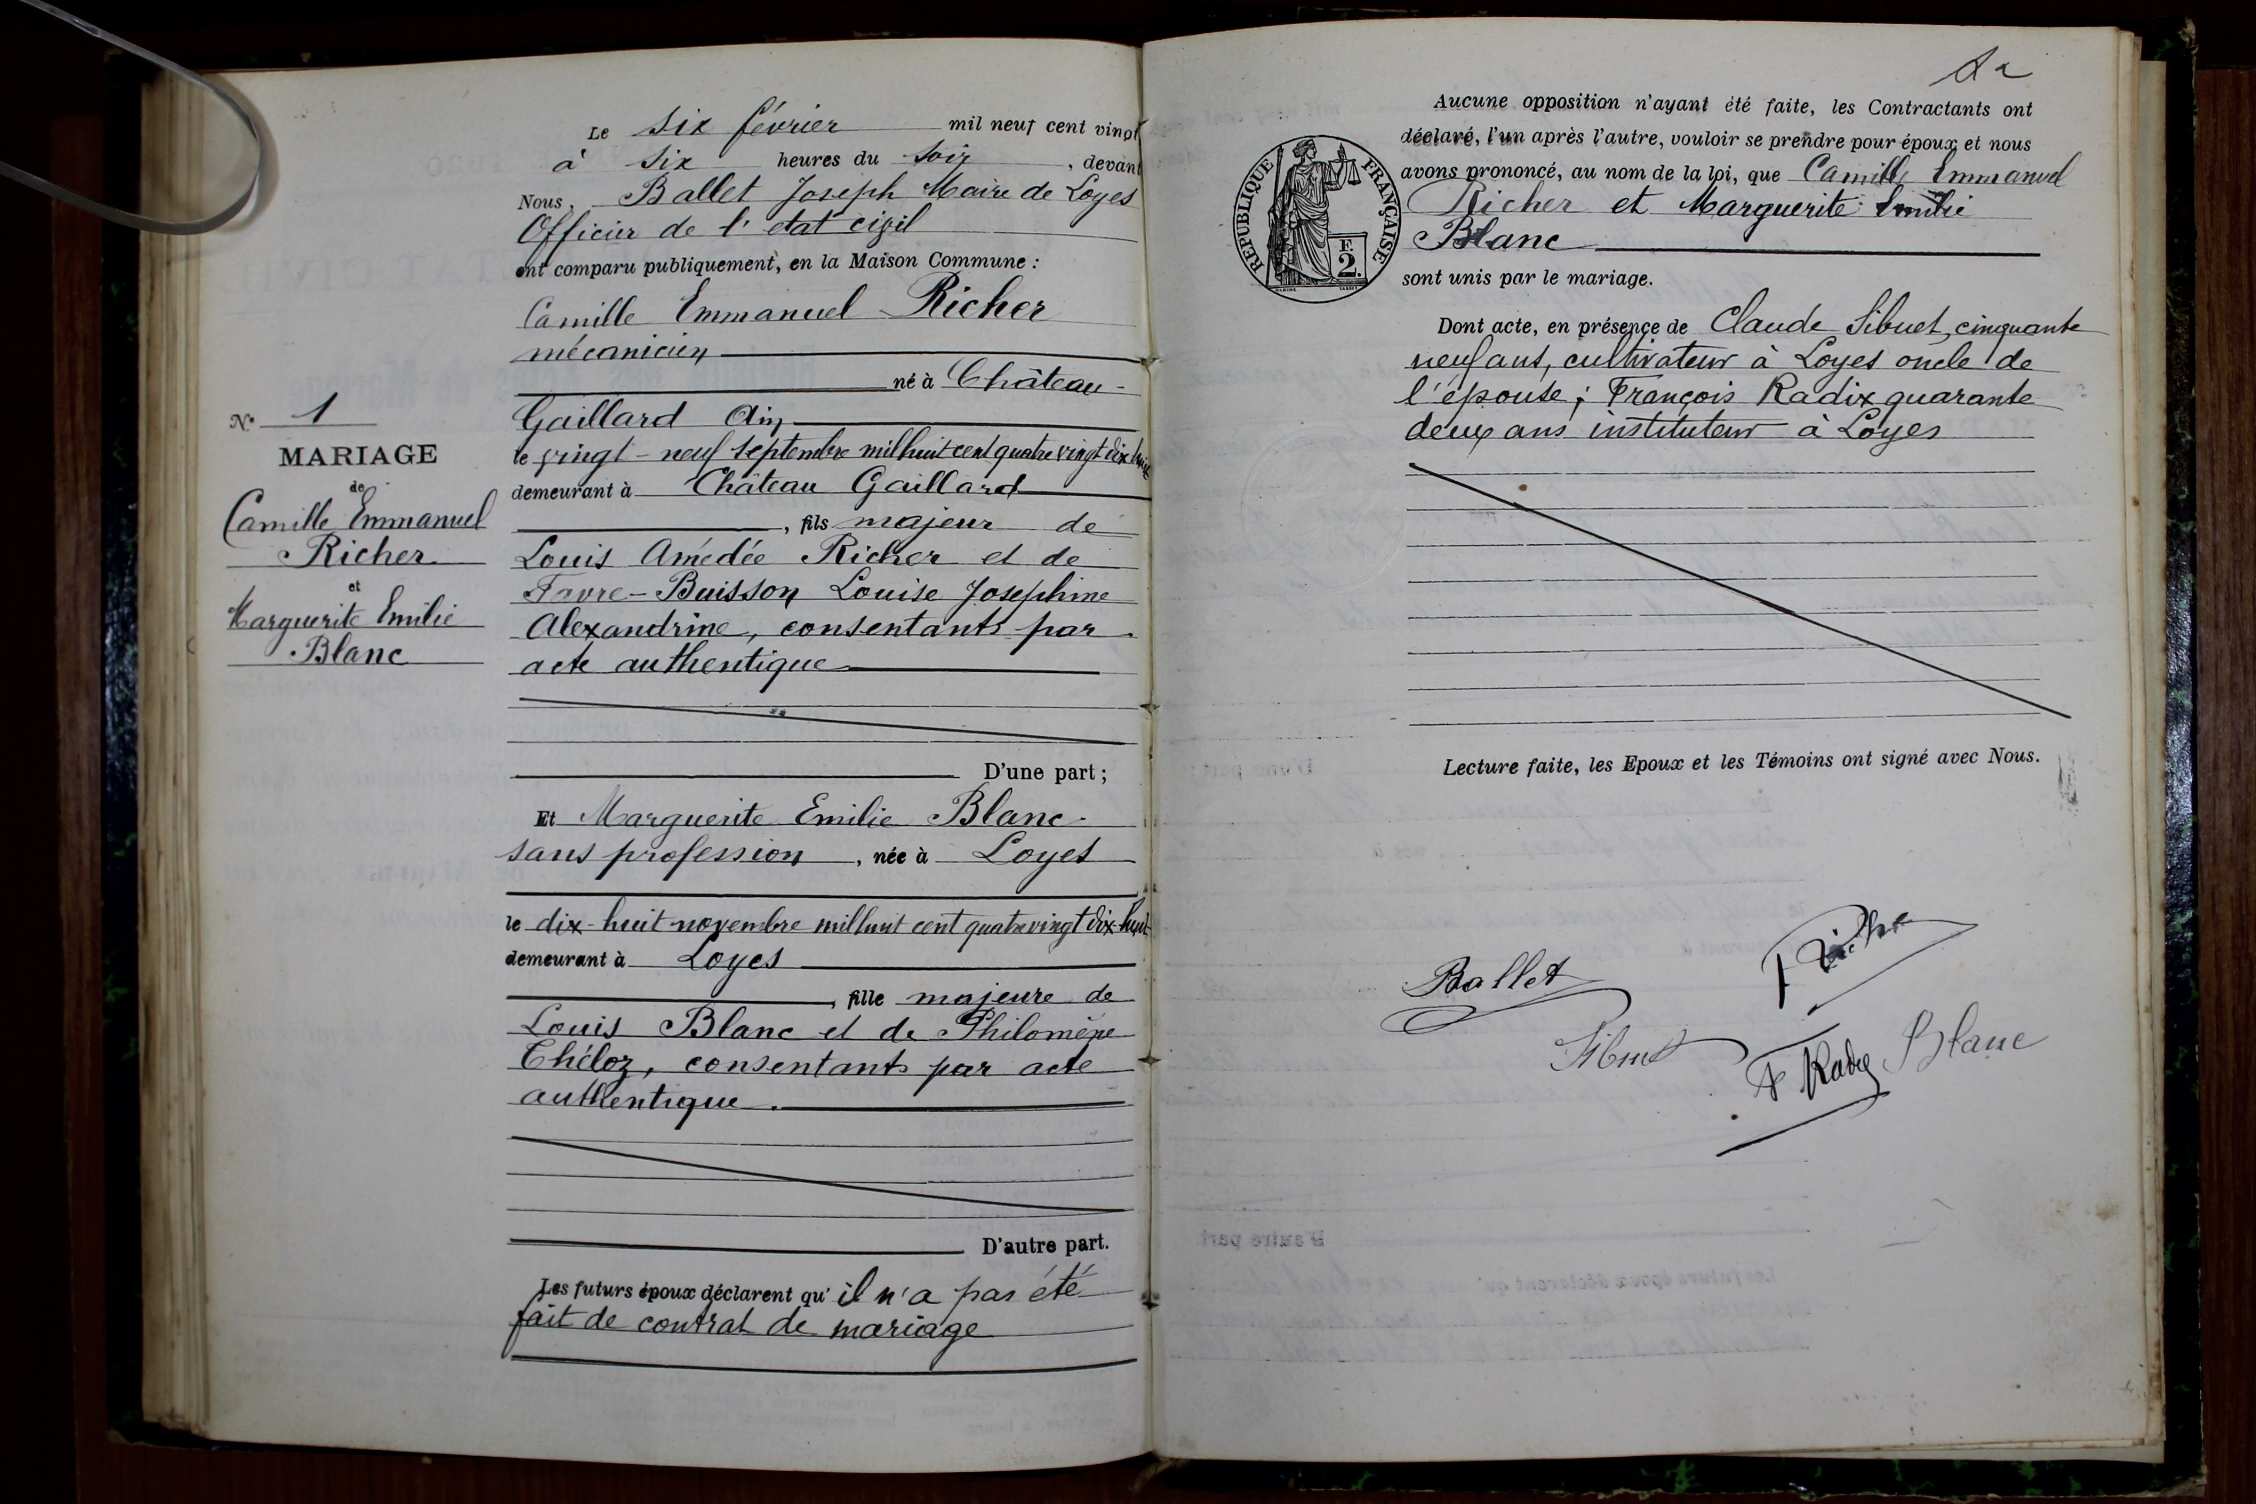 Le six février mil neuf cent vingt
à six heures du soir, devant
Nous, Ballet Joseph Maire de Loyes
Officier de l'etat civil
ont comparu publiquement, en la Maison Commune :
Camille Emmanuel Richer
mécanicien
né à Château-
Gaillard Ain
le vingt-neuf septembre mil huit cent quatre vingt dix huit
demeurant à Château Gaillard
, fils majeur de
Louis Amédée Richer et de
Favre-Buisson Louise Josephine
Alexandrine, consentants par
acte authentique
D'une part ;
Et Marguerite Emilie Blanc
sans profession, née à Loyes
le dix-huit novembre mil huit cent quatre vingt dix-huit
demeurant à Loyes
, fille majeure de
Louis Blanc et de Philomène
Théloz, consentants par acte
authentique.
D'autre part.
Les futurs époux déclarent qu'il n'a pas été
fait de contrat de mariage
N° 1
MARIAGE
de
Camille Emmanuel
Richer
et
Marguerite Emilie
Blanc
Aucune opposition n'ayant été faite, les Contractants ont
déclaré, l'un après l'autre, vouloir se prendre pour époux et nous
avons prononcé, au nom de la loi, que Camille Emmanuel
Richer et Marguerite Emilie
Blanc
sont unis par le mariage.
RÉPUBLIQUE FRANÇAISE
F.
2.
Dont acte, en présence de Claude Sibuet, cinquante
neuf ans, cultivateur à Loyes oncle de
l'épouse ; François Radix quarante
deux ans instituteur à Loyes
Lecture faite, les Epoux et les Témoins ont signé avec Nous.
Ballet
Richer
Sibuet
F Radix
Blanc